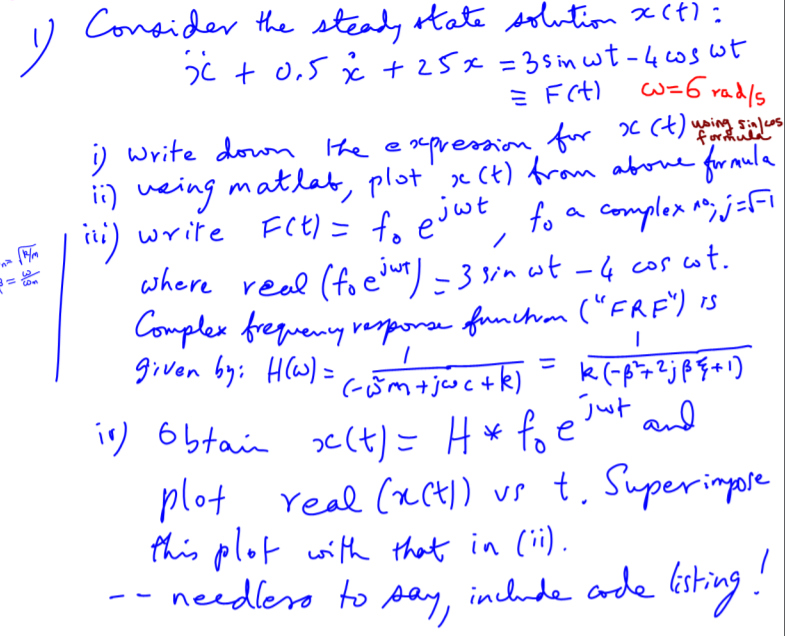 1) Consider the steady state solution x(t):
ẍ + 0.5 ẋ + 25x = 3 sin ωt - 4 cos ωt
≡ F(t) ω=6 rad/s
i) Write down the expression for x(t) using sin/cos formula
ii) using matlab, plot x(t) from above formula
iii) write F(t) = f₀ e^{jωt}, f₀ a complex no; j=√-1
n= √(k/m)
= ω/ωn
where real (f₀e^{jωt}) = 3 sin ωt - 4 cos ωt.
Complex frequency response function ("FRF") is
given by: H(ω) = 1/(-ω²m + jωc + k) = 1/(k(-β²+2jβξ+1))
iv) Obtain x(t) = H * f₀ e^{jωt} and
plot real (x(t)) vs t. Superimpose
this plot with that in (ii).
-- needless to say, include code listing!